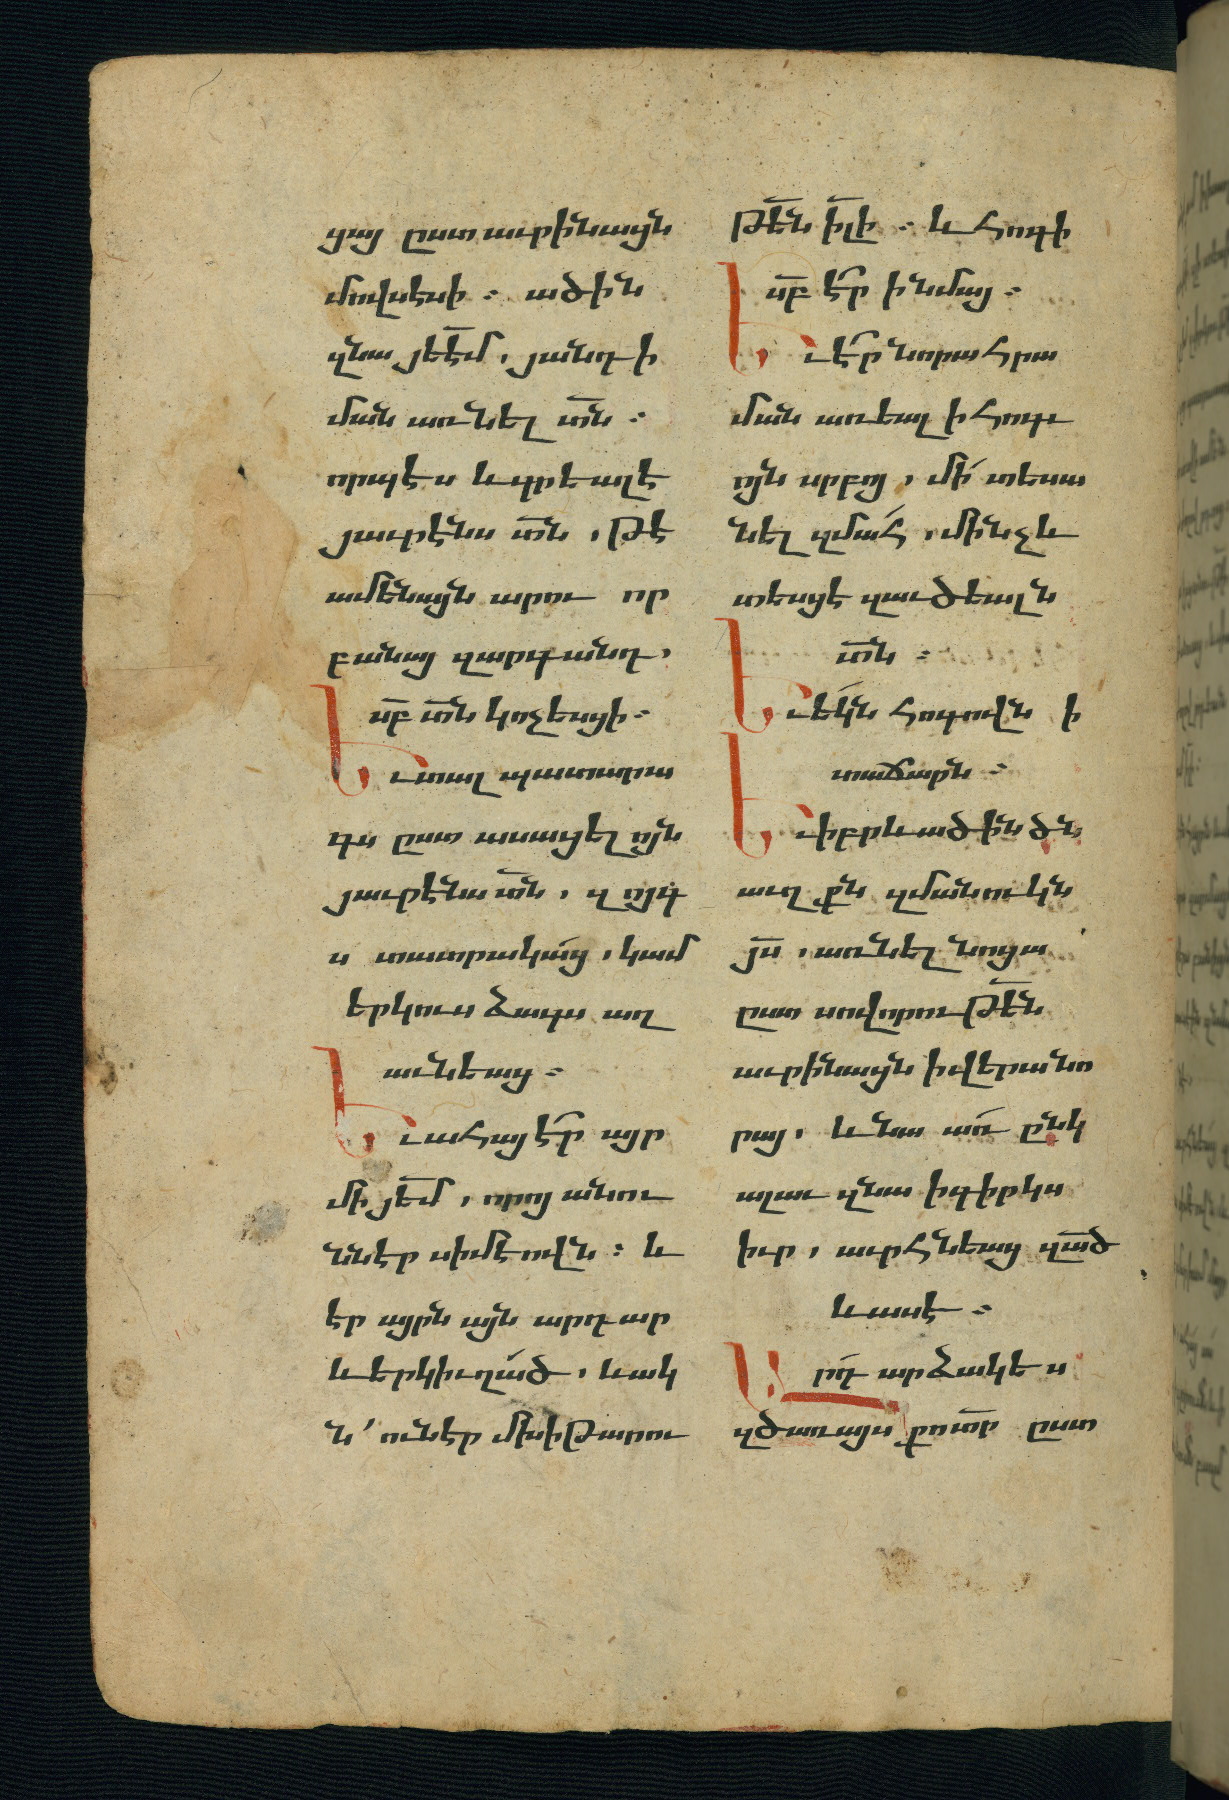 ցայ ըստ աւրինացն
մովսէսի ։ ածին
զնա յե̅է̅մ , յանդի
ման առնել տ̅ն ։
որպէս և գրեալէ
յաւրէնս տ̅ն , թէ
ամենայն արու որ
բանայ զարգանդ ,
ս̅բ տ̅ն կոչեսցի ։
Եւ տալ պատարա
գս ըստ ասացելոյն
յաւրէնս տ̅ն , զոյգ
ս տատրակաց , կամ
երկուս ձագս աղ
աւնեաց ։
Եւ ահայ է̅ր այր
մի յե̅մ , որոյ անու
նն էր սիմէովն ։ և
էր այրն այն արդար
և երկիւղած , և ակ
ն՛ ունէր մխիթարու
թե̅ն ի̅լի ։ և հոգի
ս̅բ է̅ր ի նմայ ։
Եւ է̅ր նորա հրա
ման առեալ ի հոգւ
ոյն սրբոյ , մի՛ տեսա
նել զմահ , մինչև
տեսցէ զաւծեալն
տ̅ն ։
Եւ եկն հոգովն ի
տաճարն ։
Եւ իբրև ածին ծն
աւղքն զմանուկն
յ̅ս , առնել նոցա
ըստ սովորութե̅ն
աւրինացն ի վերա նո
րայ , և նա առ ընկ
ալաւ զնա ի գիրկս
իւր , աւրհնեաց զա̅ծ
և ասէ ։
Արդ արձակես
զծառայս քո տ̅ր ըստ